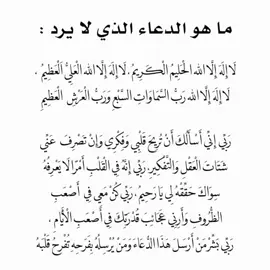 ما هو الدعاء الذي لا يرد :
لَا إِلَهَ إِلَّا الله الْحَلِيمُ الْكَرِيمُ . لَا إِلَهَ إِلَّا الله الْعَلِيُّ الْعَظِيمُ .
لَا إِلَهَ إِلَّا الله رَبُّ السَّمَاوَاتِ السَّبْعِ وَرَبُّ الْعَرْشِ الْعَظِيمِ
رَبِّي إِنِّي أَسْأَلُكَ أَنْ تُرِيحَ قَلْبِي وَفِكْرِي وَإِنْ تَصْرِفَ عَنِّي
شَتَاتَ الْعَقْلِ وَالتَّفْكِيرِ. رَبِّي إِنَّهُ فِي الْقَلْبِ أَمْرًا لَا يَعْرِفُهُ
سِوَاكَ حَقِّقْهُ لِي يَا رَحِيمُ . رَبِّي كُنْ مَعِي فِي أَصْعَبِ
الظُّرُوفِ وَأَرِنِي عَجَائِبَ قُدْرَتِكَ فِي أَصْعَبِ الْأَيَّامِ .
رَبِّي بَشِّرْ مَنْ أَرْسَلَ هَذَا الدُّعَاءَ وَمَنْ يُرْسِلُهُ بِفَرْحَةٍ تُفْرِحُ قَلْبَهُ